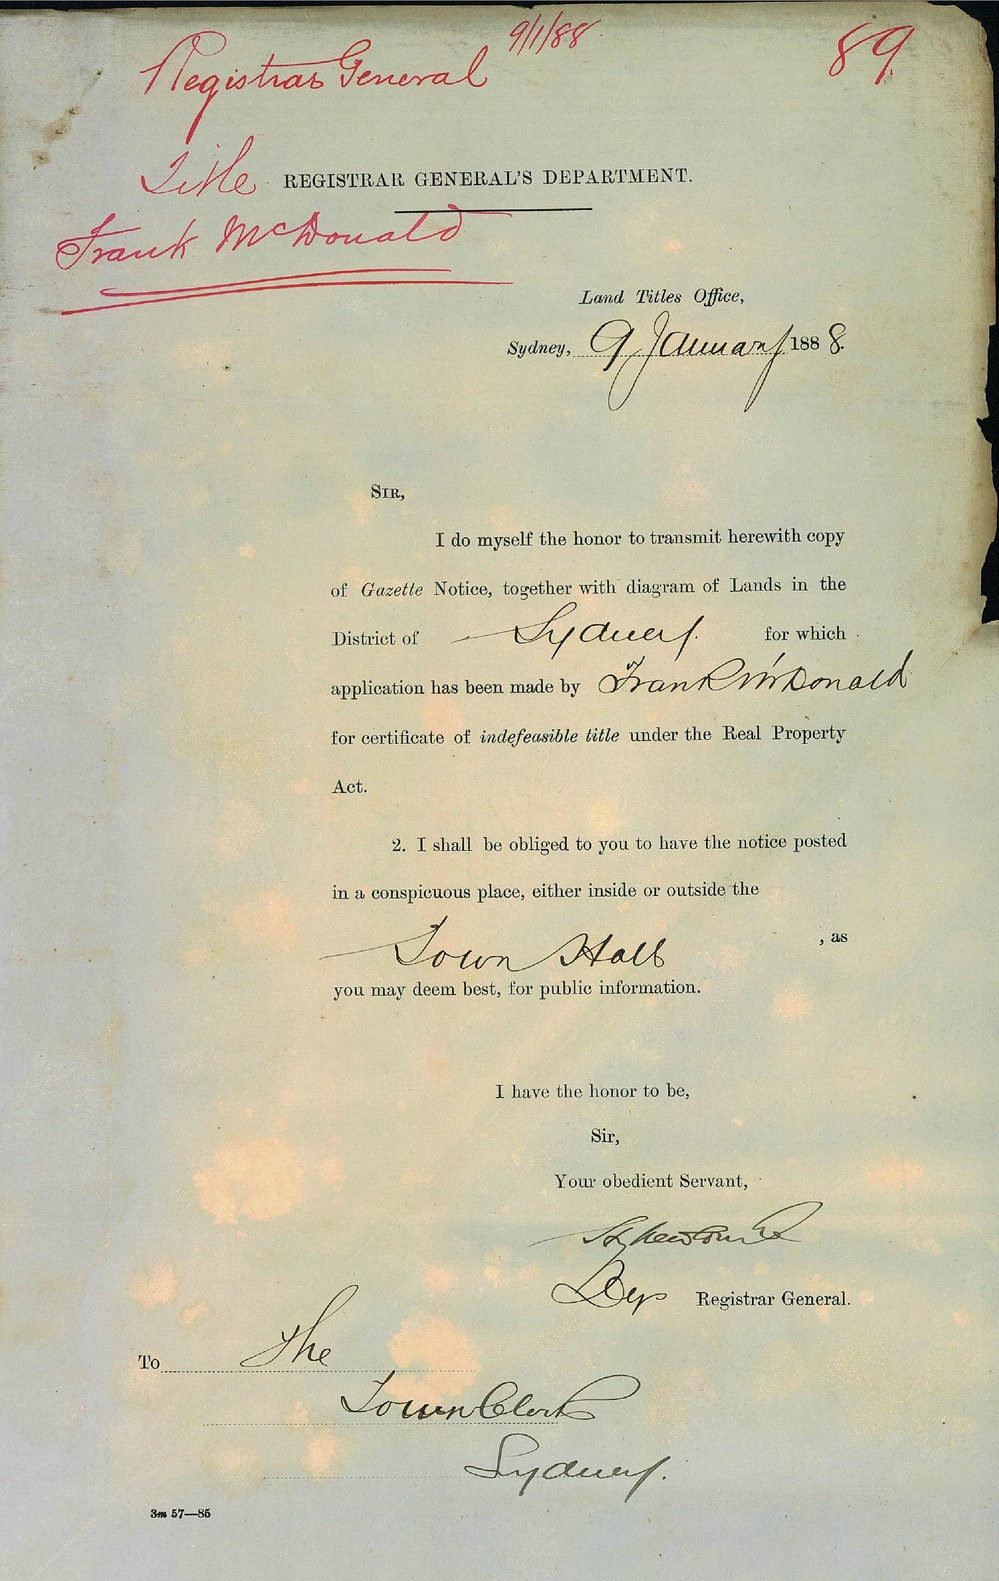 9/1/88
89
Registrar General
Title
REGISTRAR GENERAL'S DEPARTMENT.
Frank McDonald
Land Titles Office,
Sydney, 9 January 1888.
SIR,
I do myself the honor to transmit herewith copy
of Gazette Notice, together with diagram of Lands in the
District of Sydney. for which
application has been made by Frank McDonald
for certificate of indefeasible title under the Real Property
Act.
2. I shall be obliged to you to have the notice posted
in a conspicuous place, either inside or outside the
Town Hall , as
you may deem best, for public information.
I have the honor to be,
Sir,
Your obedient Servant,
Dep Registrar General.
To The
Town Clerk
Sydney.
3m 57—85